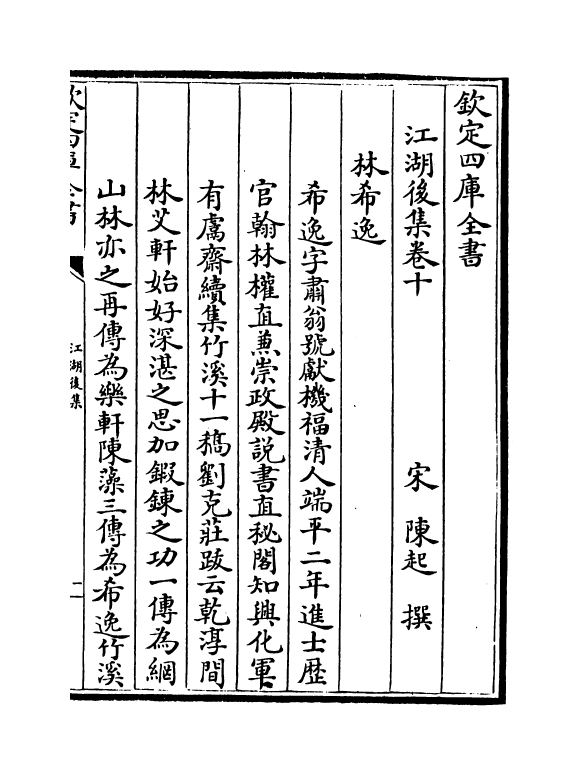 欽定四庫全書
江湖後集卷十
宋 陳起 撰
林希逸
希逸字肅翁號獻機福清人端平二年進士歴
官翰林權直兼崇政殿説書直秘閣知興化軍
有鬳齋續集竹溪十一稿劉克莊跋云乾淳間
林艾軒始好深湛之思加鍛錬之功一傳為網
山林亦之再傳為樂軒陳藻三傳為希逸竹溪
欽定四庫全書
江湖後集